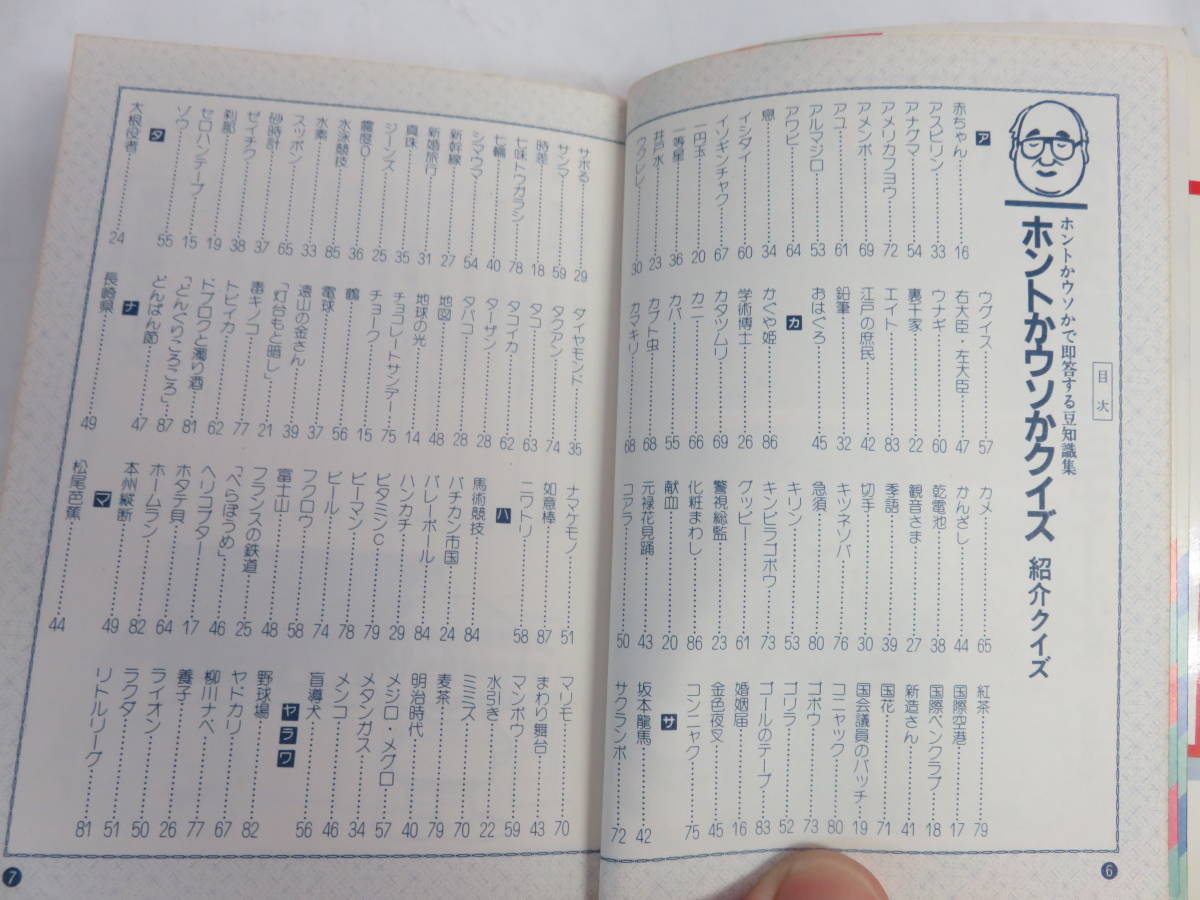 ホントかウソかで即答する豆知識集
ホントかウソかクイズ 紹介クイズ
目次
ア
赤ちゃん……16
アスピリン……33
アナグマ……54
アメリカフヨウ……72
アメンボ……69
アユ……61
アルマジロ……53
アワビ……64
息……34
イシダイ……60
イソギンチャク……67
一円玉……20
一等星……36
井戸水……23
ウクレレ……30
ウグイス……57
右大臣・左大臣……47
ウナギ……60
裏千家……22
エイト……83
江戸の庶民……42
鉛筆……32
おはぐろ……45
カ
かぐや姫……86
学術博士……26
カタツムリ……69
カニ……66
カバ……55
カブト虫……68
カマキリ……68
カメ……65
かんざし……44
乾電池……38
観音さま……27
季語……39
切手……30
キツネソバ……76
急須……80
キリン……53
キンピラゴボウ……73
グッピー……61
警視総監……23
化粧まわし……86
献血……20
元禄花見踊……43
コアラ……50
紅茶……79
国際空港……17
国際ペンクラブ……18
新造さん……41
国花……71
国会議員のバッチ……19
コニャック……80
ゴボウ……73
ゴリラ……52
ゴールのテープ……83
婚姻届……16
金色夜叉……45
コンニャク……75
サ
坂本龍馬……42
サクランボ……72
6
サボる……29
サンマ……59
時差……18
七味トウガラシ……78
七輪……40
シマウマ……54
新幹線……27
新婚旅行……31
真珠……35
ジーンズ……25
震度0……36
水泳競技……85
水素……33
スッポン……65
砂時計……37
ゼイチク……38
刹那……19
セロハンテープ……15
ゾウ……55
タ
大根役者……24
ダイヤモンド……35
タクアン……74
タコ……63
タコイカ……62
ターザン……28
タバコ……28
地図……48
地球の光……14
チョコレートサンデー……75
チョーク……15
鶴……56
電球……37
遠山の金さん……39
「灯台もと暗し」……21
毒キノコ……77
トビイカ……62
ドブロクと濁り酒……81
「どんぐりころころ」……87
どんぱん節……47
ナ
長崎県……49
ナマケモノ……51
如意棒……87
ニワトリ……58
ハ
馬術競技……84
バチカン市国……24
バレーボール……84
ハンカチ……29
ビタミンC……79
ピーマン……78
ビール……74
フクロウ……58
富士山……48
フランスの鉄道……25
「べらぼうめ」……46
ヘリコプター……17
ホタテ貝……64
ホームラン……82
本州縦断……49
マ
松尾芭蕉……44
マリモ……70
まわり舞台……43
マンボウ……59
水引き……22
ミミズ……70
麦茶……79
明治時代……40
メジロ・メグロ……57
メタンガス……34
メンコ……46
盲導犬……56
ヤラワ
野球場……82
ヤドカリ……67
柳川ナベ……77
養子……26
ライオン……50
ラクダ……51
リトルリーグ……81
7